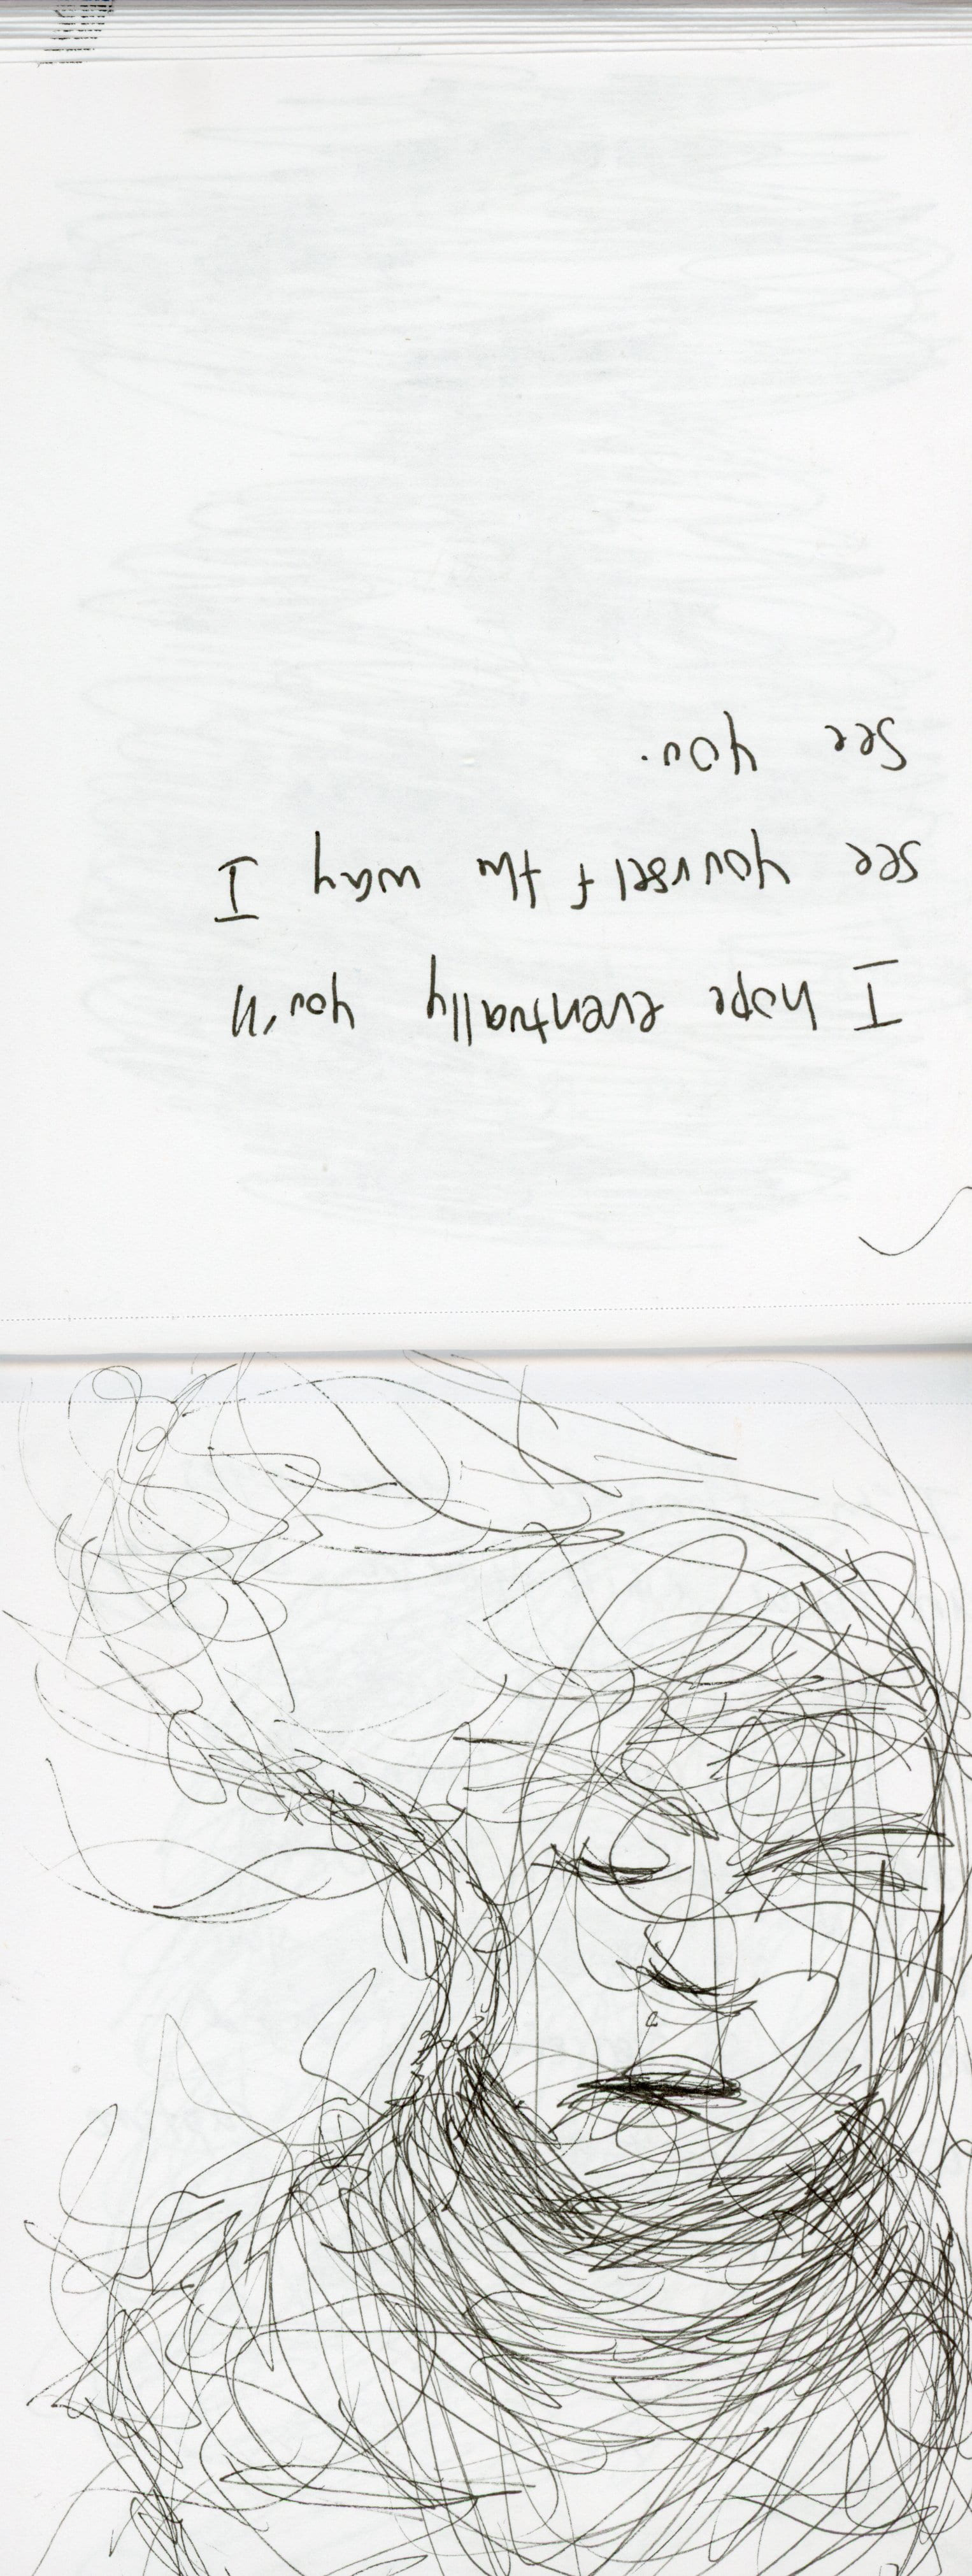 I hope eventually you'll
see yourself the way I
see you.